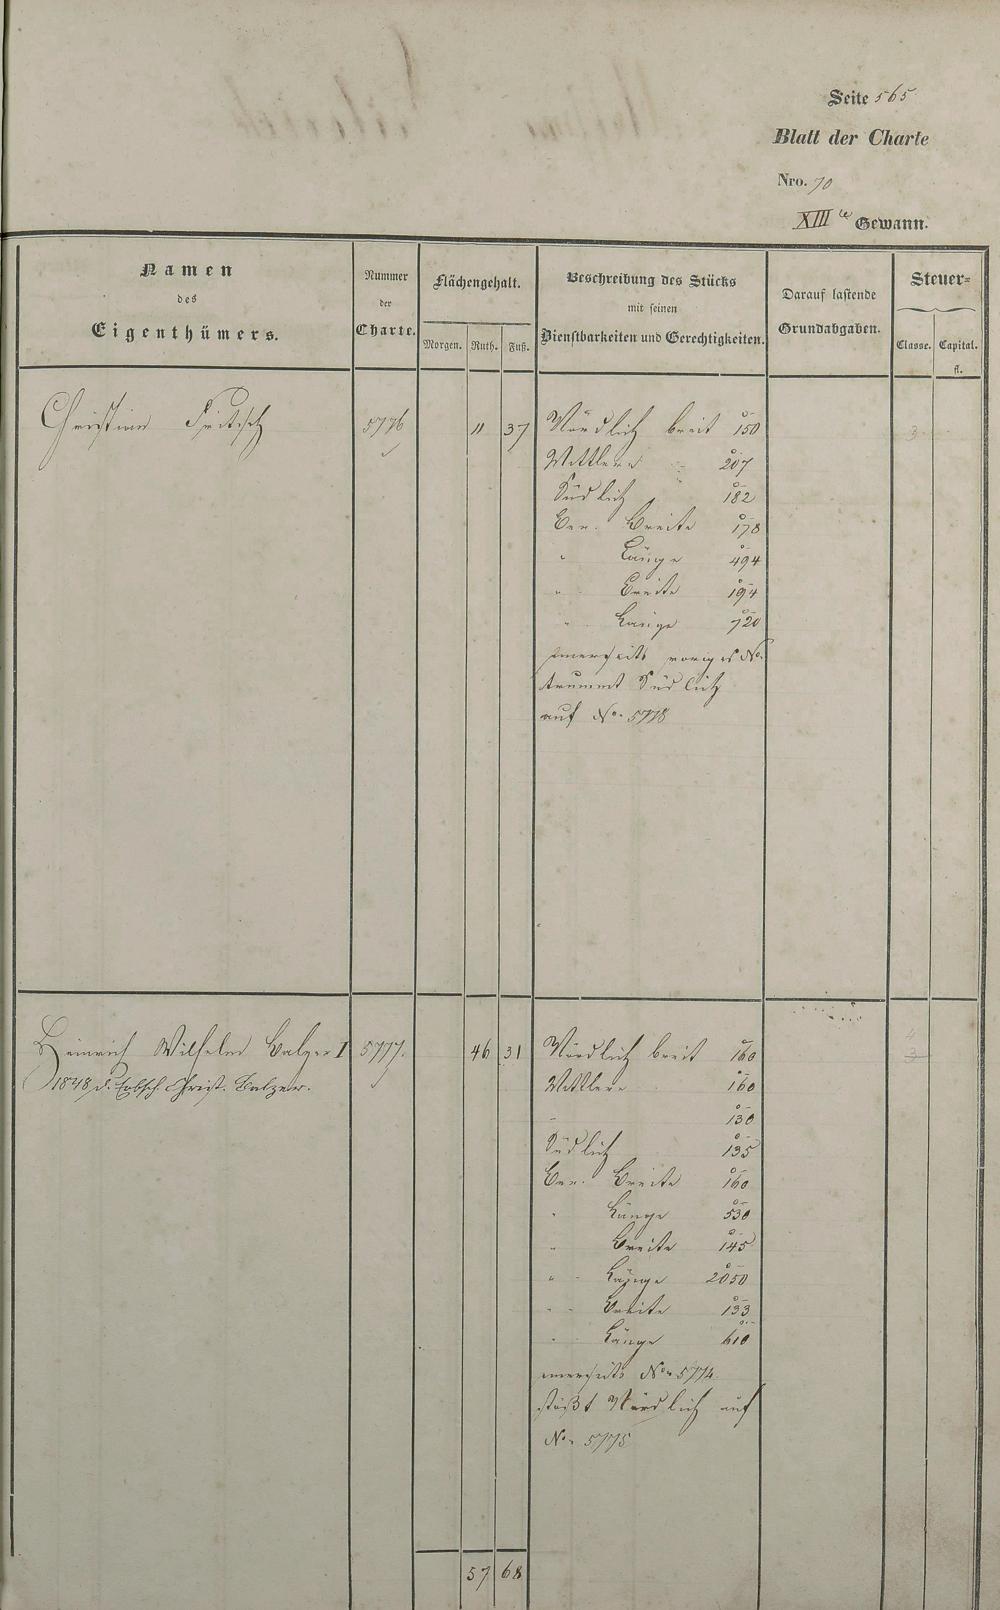 Seite 565
Blatt der Charte
Nro. 70
XIIIte Gewann.
Namen
des
Eigenthümers.
Nummer
der
Charte.
Flächengehalt.
Morgen. Ruth. Fuß.
Beschreibung des Stücks
mit seinen
Dienstbarkeiten und Gerechtigkeiten.
Darauf lastende
Grundabgaben.
Steuer-
Classe. Capital.
fl.
Christian Fritsch 5776 11 37 Nördlich breit 150 3
Mittlere 207
Südlich 182
Ber. Breite 178
" Länge 494
" Breite 194
" Länge 720
einerseits voriges No.
trummt Südlich
auf No. 5778
Heinrich Wilhelm Balzer I 5777. 46 31 Nördlich breit 160 3
1848 d. Erbsch. Christ. Balzer. Mittlere 160
130
Südlich 135
Ber. Breite 160
" Länge 530
" Breite 145
" Länge 2050
" Breite 133
" Länge 610
einerseits No. 5774.
stößt Nördlich auf
No. 5775
57 68